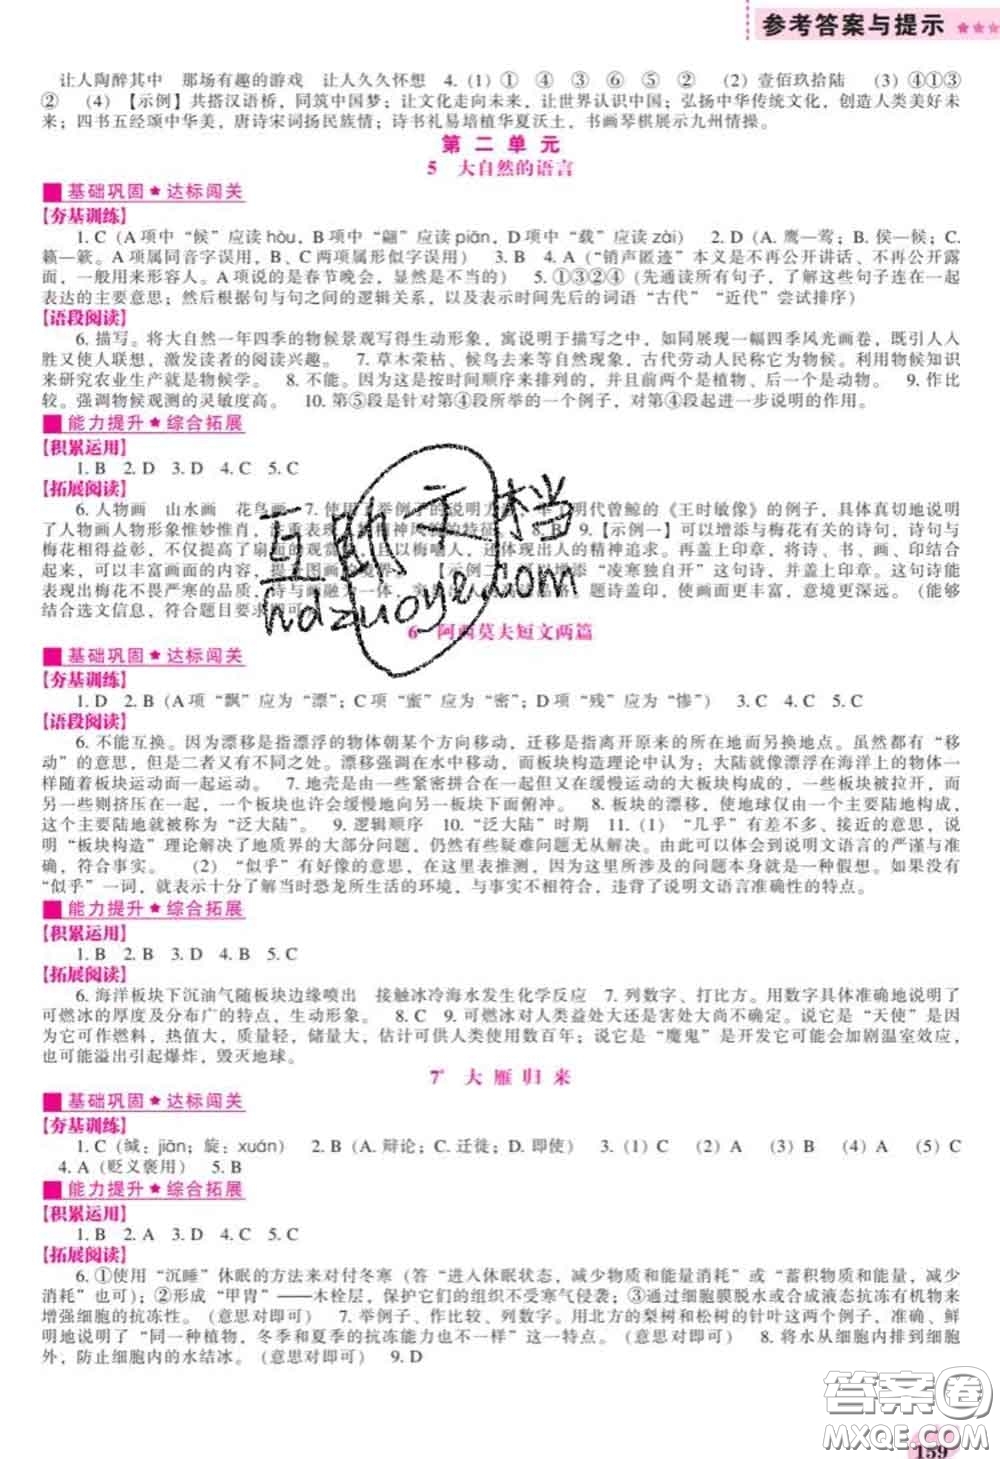 参考答案与提示
让人陶醉其中　那场有趣的游戏　让人久久怀想　4. (1) ①　④　③　⑥　⑤　②　(2) 壹佰玖拾陆　(3) ④①③
②　(4) 【示例】共搭汉语桥，同筑中国梦；让文化走向未来，让世界认识中国；弘扬中华传统文化，创造人类美好未
来；四书五经颂中华美，唐诗宋词扬民族情；诗书礼易培植华夏沃土，书画琴棋展示九州情操。
第 二 单 元
5　大自然的语言
基础巩固★达标闯关
【夯基训练】
1. C（A 项中“候”应读 hòu，B 项中“翩”应读 piān，D 项中“载”应读 zài）　2. D（A. 鹰—莺；B. 侯—候；C.
籁—簌。A 项属同音字误用，B、C 两项属形似字误用）　3. B　4. A（“销声匿迹”本义是不再公开讲话、不再公开露
面，一般用来形容人。A 项说的是春节晚会，显然是不当的）　5. ①③②④（先通读所有句子，了解这些句子连在一起
表达的主要意思；然后根据句与句之间的逻辑关系，以及表示时间先后的词语“古代”“近代”尝试排序）
【语段阅读】
6. 描写。将大自然一年四季的物候景观写得生动形象，寓说明于描写之中，如同展现一幅四季风光画卷，既引人入
胜又使人联想，激发读者的阅读兴趣。　7. 草木荣枯、候鸟去来等自然现象，古代劳动人民称它为物候。利用物候知识
来研究农业生产就是物候学。　8. 不能。因为这是按时间顺序来排列的，并且前两个是植物、后一个是动物。　9. 作比
较。强调物候观测的灵敏度高。　10. 第⑤段是针对第④段所举的一个例子，对第④段起进一步说明的作用。
能力提升★综合拓展
【积累运用】
1. B　2. D　3. D　4. C　5. C
【拓展阅读】
6. 人物画　山水画　花鸟画　7. 使用了举例子的说明方　明代曾鲸的《王时敏像》的例子，具体真切地说明
了人物画人物形象惟妙惟肖，注重表现　精神风　的特征　8. B　9. 【示例一】可以增添与梅花有关的诗句，诗句与
梅花相得益彰，不仅提高了扇面的观赏　且以梅喻人，还体现出人的精神追求。再盖上印章，将诗、书、画、印结合
起来，可以丰富画面的内容，提　图画　境界。【示例二】　以增添“凌寒独自开”这句诗，并盖上印章。这句诗能
表现出梅花不畏严寒的品质，诗与画融为一体，　题诗盖印，使画面更丰富，意境更深远。（能够
结合选文信息，符合题目要求即可
互助文档
hdzuoye.com
6　阿西莫夫短文两篇
基础巩固★达标闯关
【夯基训练】
1. D　2. B（A 项“飘”应为“漂”；C 项“蜜”应为“密”；D 项“残”应为“惨”）　3. C　4. C　5. C
【语段阅读】
6. 不能互换。因为漂移是指漂浮的物体朝某个方向移动，迁移是指离开原来的所在地而另换地点。虽然都有“移
动”的意思，但是二者又有不同之处。漂移强调在水中移动，而板块构造理论中认为：大陆就像漂浮在海洋上的物体一
样随着板块运动而一起运动。　7. 地壳是由一些紧密拼合在一起但又在缓慢运动的大板块构成的，一些板块被拉开，而
另一些则挤压在一起，一个板块也许会缓慢地向另一个板块下面俯冲。　8. 板块的漂移，使地球仅由一个主要陆地构成，
这个主要陆地就被称为“泛大陆”。　9. 逻辑顺序　10. “泛大陆”时期　11. (1) “几乎”有差不多、接近的意思，说
明“板块构造”理论解决了地质界的大部分问题，仍然有些疑难问题无从解决。由此可以体会到说明文语言的严谨与准
确，符合事实。　(2) “似乎”有好像的意思，在这里表推测，因为这里所涉及的问题本身就是一种假想。如果没有
“似乎”一词，就表示十分了解当时恐龙所生活的环境，与事实不相符合，违背了说明文语言准确性的特点。
能力提升★综合拓展
【积累运用】
1. B　2. B　3. D　4. B　5. C
【拓展阅读】
6. 海洋板块下沉油气随板块边缘喷出　接触冰冷海水发生化学反应　7. 列数字、打比方。用数字具体准确地说明了
可燃冰的厚度及分布广的特点，生动形象。　8. C　9. 可燃冰对人类益处大还是害处大尚不确定。说它是“天使”是
因为它可作燃料，热值大，质量轻，储量大，估计可供人类使用数百年；说它是“魔鬼”是开发它可能会加剧温室效应，
也可能溢出引起爆炸，毁灭地球。
7* 大 雁 归 来
基础巩固★达标闯关
【夯基训练】
1. C（缄：jiān；旋：xuán）　2. B（A. 辩论；C. 迁徙；D. 即使）　3. (1) C　(2) A　(3) B　(4) A　(5) C
4. A（贬义褒用）　5. B
能力提升★综合拓展
【积累运用】
1. B　2. A　3. D　4. C　5. C
【拓展阅读】
6. ①使用“沉睡”休眠的方法来对付冬寒（答“进入休眠状态，减少物质和能量消耗”或“蓄积物质和能量，减少
消耗”也可）；②形成“甲胄”——木栓层，保护它们的组织不受寒气侵袭；③通过细胞膜脱水或合成液态抗冻有机物来
增强细胞的抗冻性。（意思对即可）　7. 举例子、作比较、列数字。用北方的梨树和松树的针叶这两个例子，准确、鲜
明地说明了“同一种植物，冬季和夏季的抗冻能力也不一样”这一特点。（意思对即可）　8. 将水从细胞内排到细胞
外，防止细胞内的水结冰。（意思对即可）　9. D
答案圈
MXQE.COM
159